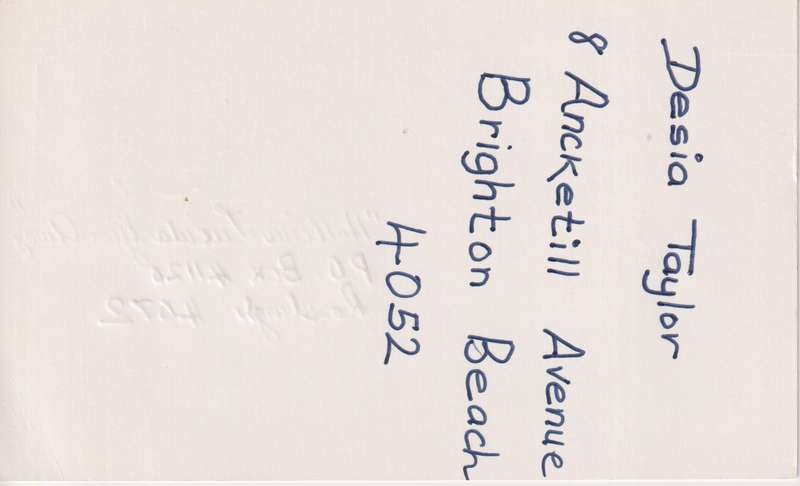 Desia Taylor
8 Ancketill Avenue
Brighton Beach
4052
P.O. Box 41126
4072